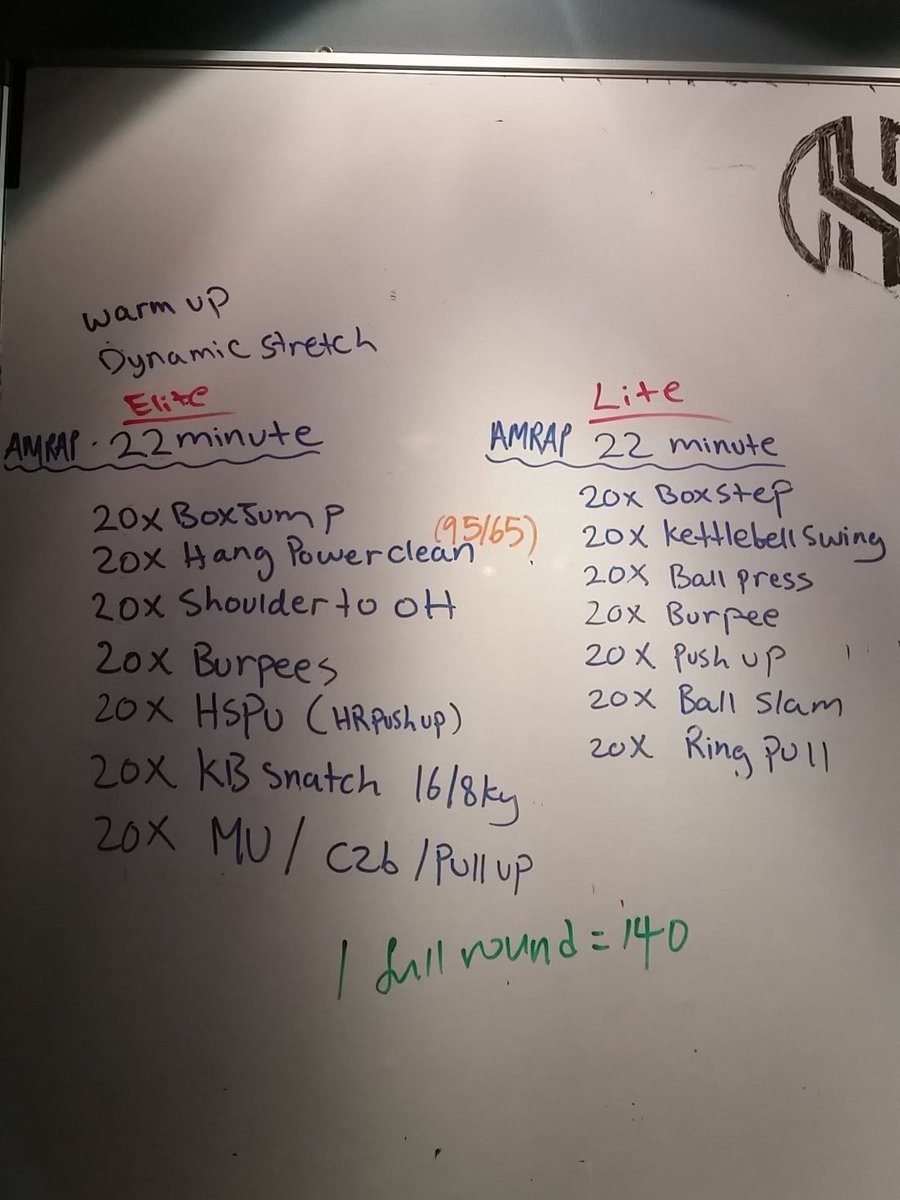 warm up
Dynamic stretch
Elite
AMRAP. 22 minute
20x Box Jump
20x Hang Power clean (95/65)
20x Shoulder to OH
20x Burpees
20x HSPU (HR Push up)
20x KB Snatch 16/8kg
20x MU / C2b / Pull up
Lite
AMRAP 22 minute
20x Box step
20x Kettlebell swing
20x Ball press
20x Burpee
20x Push up
20x Ball slam
20x Ring Pull
1 full round = 140